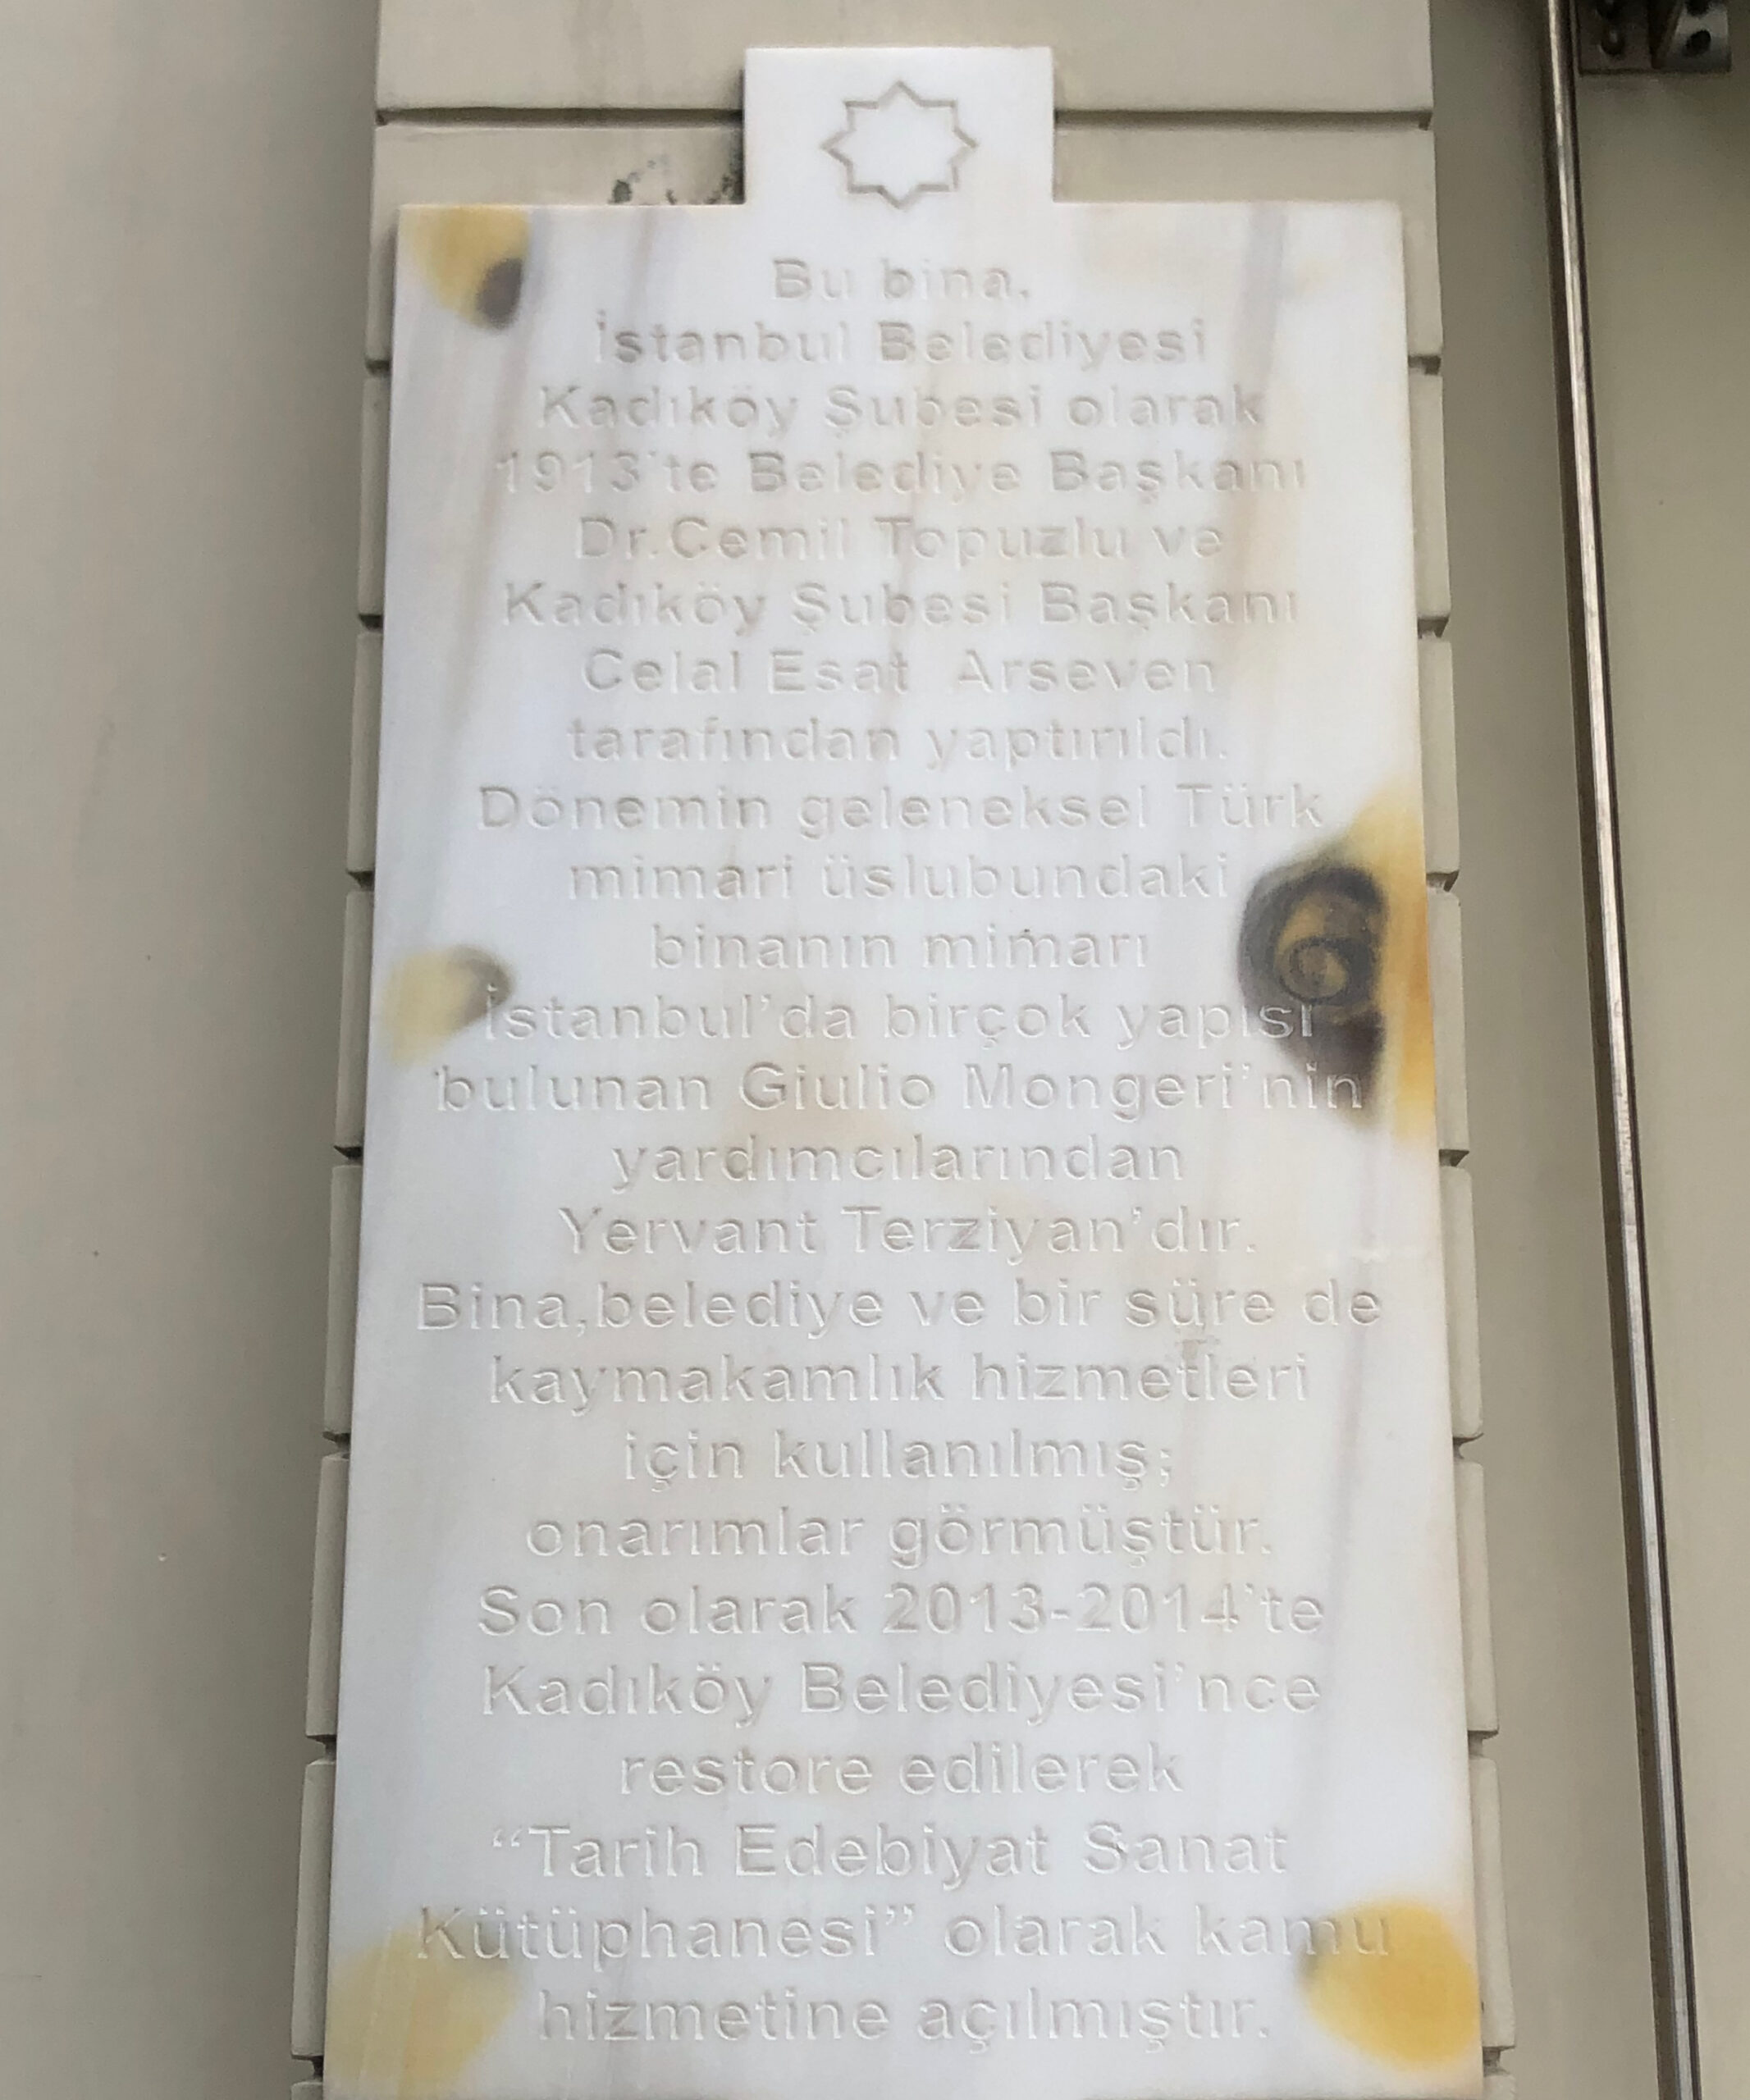 Bu bina,
İstanbul Belediyesi
Kadıköy Şubesi olarak
1913'te Belediye Başkanı
Dr.Cemil Topuzlu ve
Kadıköy Şubesi Başkanı
Celal Esat Arseven
tarafından yaptırıldı.
Dönemin geleneksel Türk
mimari üslubundaki
binanın mimarı
İstanbul'da birçok yapısı
bulunan Giulio Mongeri'nin
yardımcılarından
Yervant Terziyan'dır.
Bina,belediye ve bir süre de
kaymakamlık hizmetleri
için kullanılmış;
onarımlar görmüştür.
Son olarak 2013-2014'te
Kadıköy Belediyesi'nce
restore edilerek
“Tarih Edebiyat Sanat
Kütüphanesi” olarak kamu
hizmetine açılmıştır.